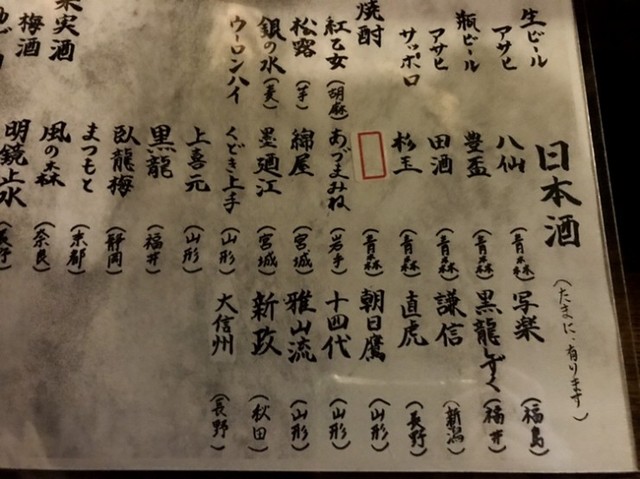 生ビール
アサヒ
瓶ビール
アサヒ
サッポロ
焼酎
紅乙女(胡麻)
松露(芋)
銀の水(麦)
ウーロンハイ
果実酒
梅酒
日本酒
八仙(青森)
豊盃(青森)
田酒(青森)
杉玉(青森)
(青森)
あづまみね(岩手)
綿屋(宮城)
墨廼江(宮城)
くどき上手(山形)
上喜元(山形)
黒龍(福井)
臥龍梅(静岡)
まつもと(京都)
風の森(奈良)
明鏡止水(長野)
(たまに、有ります)
写楽(福島)
黒龍しずく(福井)
謙信(新潟)
直虎(長野)
朝日鷹(山形)
十四代(山形)
雅山流(山形)
新政(秋田)
大信州(長野)